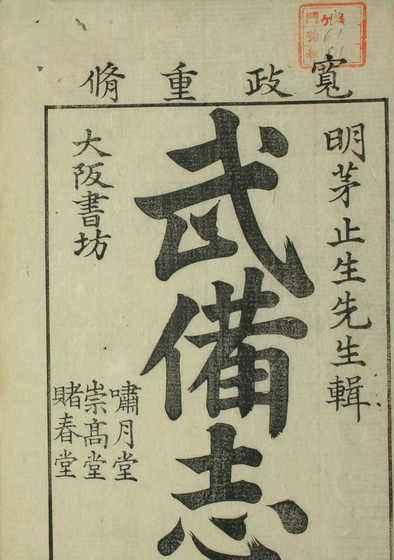 寛政重脩
明茅止生先生輯
武備志
大阪書坊
嘯月堂
崇髙堂
賭春堂